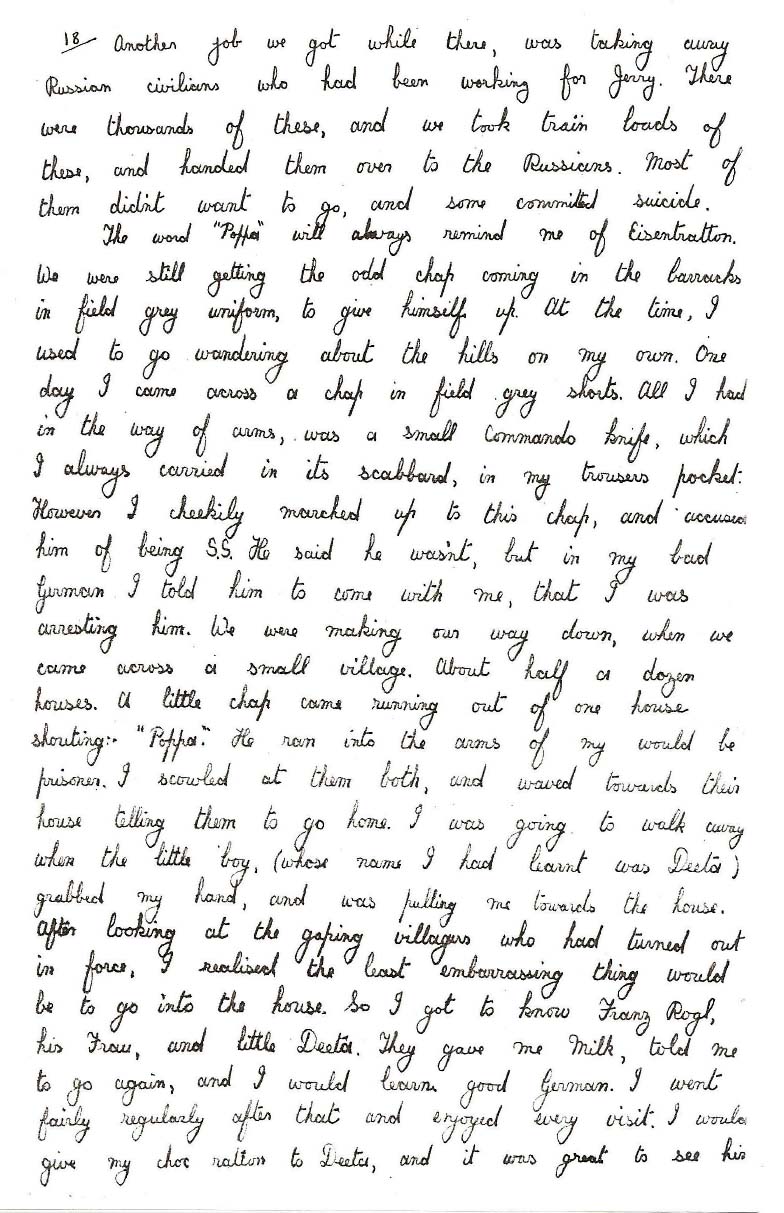 18 Another job we got while there, was taking away
Russian civilians who had been working for Jerry. There
were thousands of these, and we took train loads of
these, and handed them over to the Russians. Most of
them didn't want to go, and some commited suicide.
The word "Poppa" will always remind me of Eisentratton.
We were still getting the odd chap coming in the barracks
in field grey uniform, to give himself up. At the time, I
used to go wandering about the hills on my own. One
day I came across a chap in field grey shorts. All I had
in the way of arms, was a small Commando knife, which
I always carried in its scabbard, in my trousers pocket.
However I cheekily marched up to this chap, and accused
him of being S.S. He said he wasn't, but in my bad
German I told him to come with me, that I was
arresting him. We were making our way down, when we
came across a small village. About half a dozen
houses. A little chap came running out of one house
shouting:- "Poppa." He ran into the arms of my would be
prisoner. I scowled at them both, and waved towards their
house telling them to go home. I was going to walk away
when the little boy, (whose name I had learnt was Deeta)
grabbed my hand, and was pulling me towards the house.
After looking at the gaping villagers who had turned out
in force, I realised the least embarrassing thing would
be to go into the house. So I got to know Franz Rogl,
his Frau, and little Deeta. They gave me Milk, told me
to go again, and I would learn good German. I went
fairly regularly after that and enjoyed every visit. I would
give my choc ration to Deeta, and it was great to see his